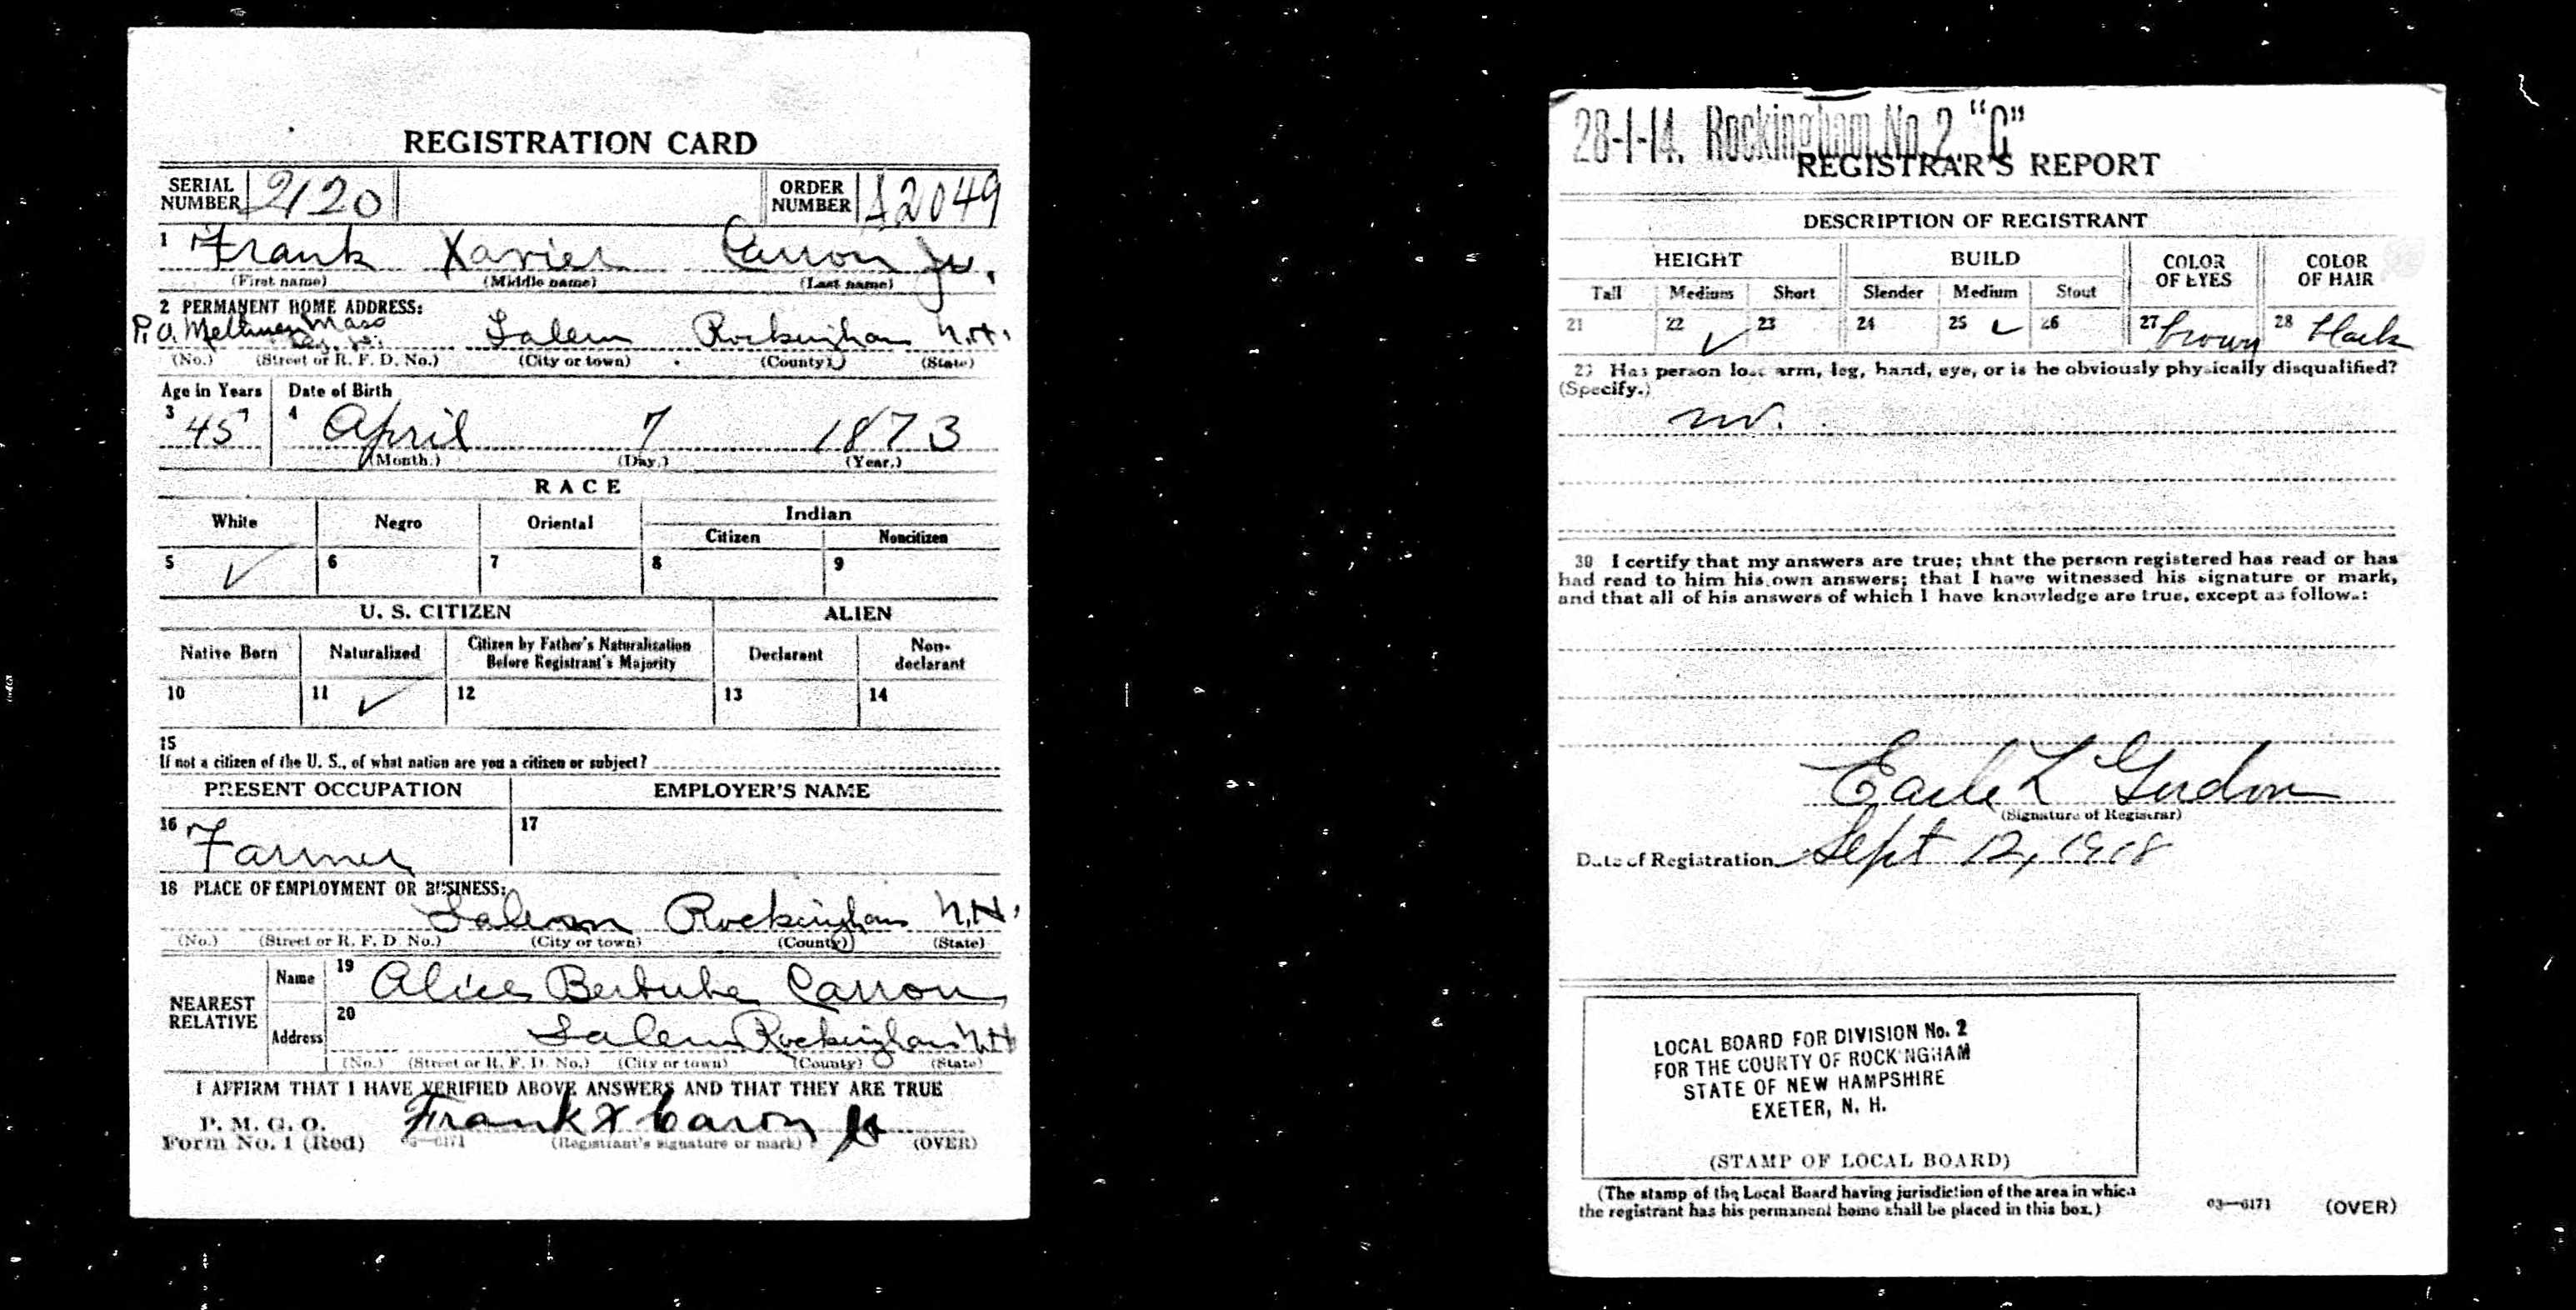 REGISTRATION CARD
SERIAL NUMBER 2120 ORDER NUMBER A2049
1 Frank Xavier Carron Jr.
(First name) (Middle name) (Last name)
2 PERMANENT HOME ADDRESS:
P.O. Methuen Mass
Salem Rockingham N.H.
(No.) (Street or R. F. D. No.) (City or town) (County) (State)
Age in Years Date of Birth
3 45 4 April 7 1873
(Month.) (Day.) (Year.)
RACE
White Negro Oriental Indian
Citizen Noncitizen
5 ✓ 6 7 8 9
U. S. CITIZEN ALIEN
Native Born Naturalized Citizen by Father's Naturalization Before Registrant's Majority Declarant Non-declarant
10 11 ✓ 12 13 14
15
If not a citizen of the U. S., of what nation are you a citizen or subject?
PRESENT OCCUPATION EMPLOYER'S NAME
16 Farmer 17
18 PLACE OF EMPLOYMENT OR BUSINESS:
Salem Rockingham N.H.
(No.) (Street or R. F. D. No.) (City or town) (County) (State)
NEAREST RELATIVE
Name 19 Alice Carron
Address 20 Salem Rockingham N.H
(No.) (Street or R. F. D. No.) (City or town) (County) (State)
I AFFIRM THAT I HAVE VERIFIED ABOVE ANSWERS AND THAT THEY ARE TRUE
P. M. G. O.
Form No. 1 (Red) 03—6171 Frank X Caron Jr (OVER)
(Registrant's signature or mark)
28-1-14. Rockingham No. 2. "C"
REGISTRAR'S REPORT
DESCRIPTION OF REGISTRANT
HEIGHT BUILD COLOR OF EYES COLOR OF HAIR
Tall Medium Short Slender Medium Stout
21 22 ✓ 23 24 25 ✓ 26 27 brown 28 black
29 Has person lost arm, leg, hand, eye, or is he obviously physically disqualified?
(Specify.)
no.
30 I certify that my answers are true; that the person registered has read or has
had read to him his own answers; that I have witnessed his signature or mark,
and that all of his answers of which I have knowledge are true, except as follows:
Earle L Gordon
(Signature of Registrar)
Date of Registration Sept 12, 1918
LOCAL BOARD FOR DIVISION No. 2
FOR THE COUNTY OF ROCKINGHAM
STATE OF NEW HAMPSHIRE
EXETER, N. H.
(STAMP OF LOCAL BOARD)
(The stamp of the Local Board having jurisdiction of the area in which
the registrant has his permanent home shall be placed in this box.)
03—6171 (OVER)